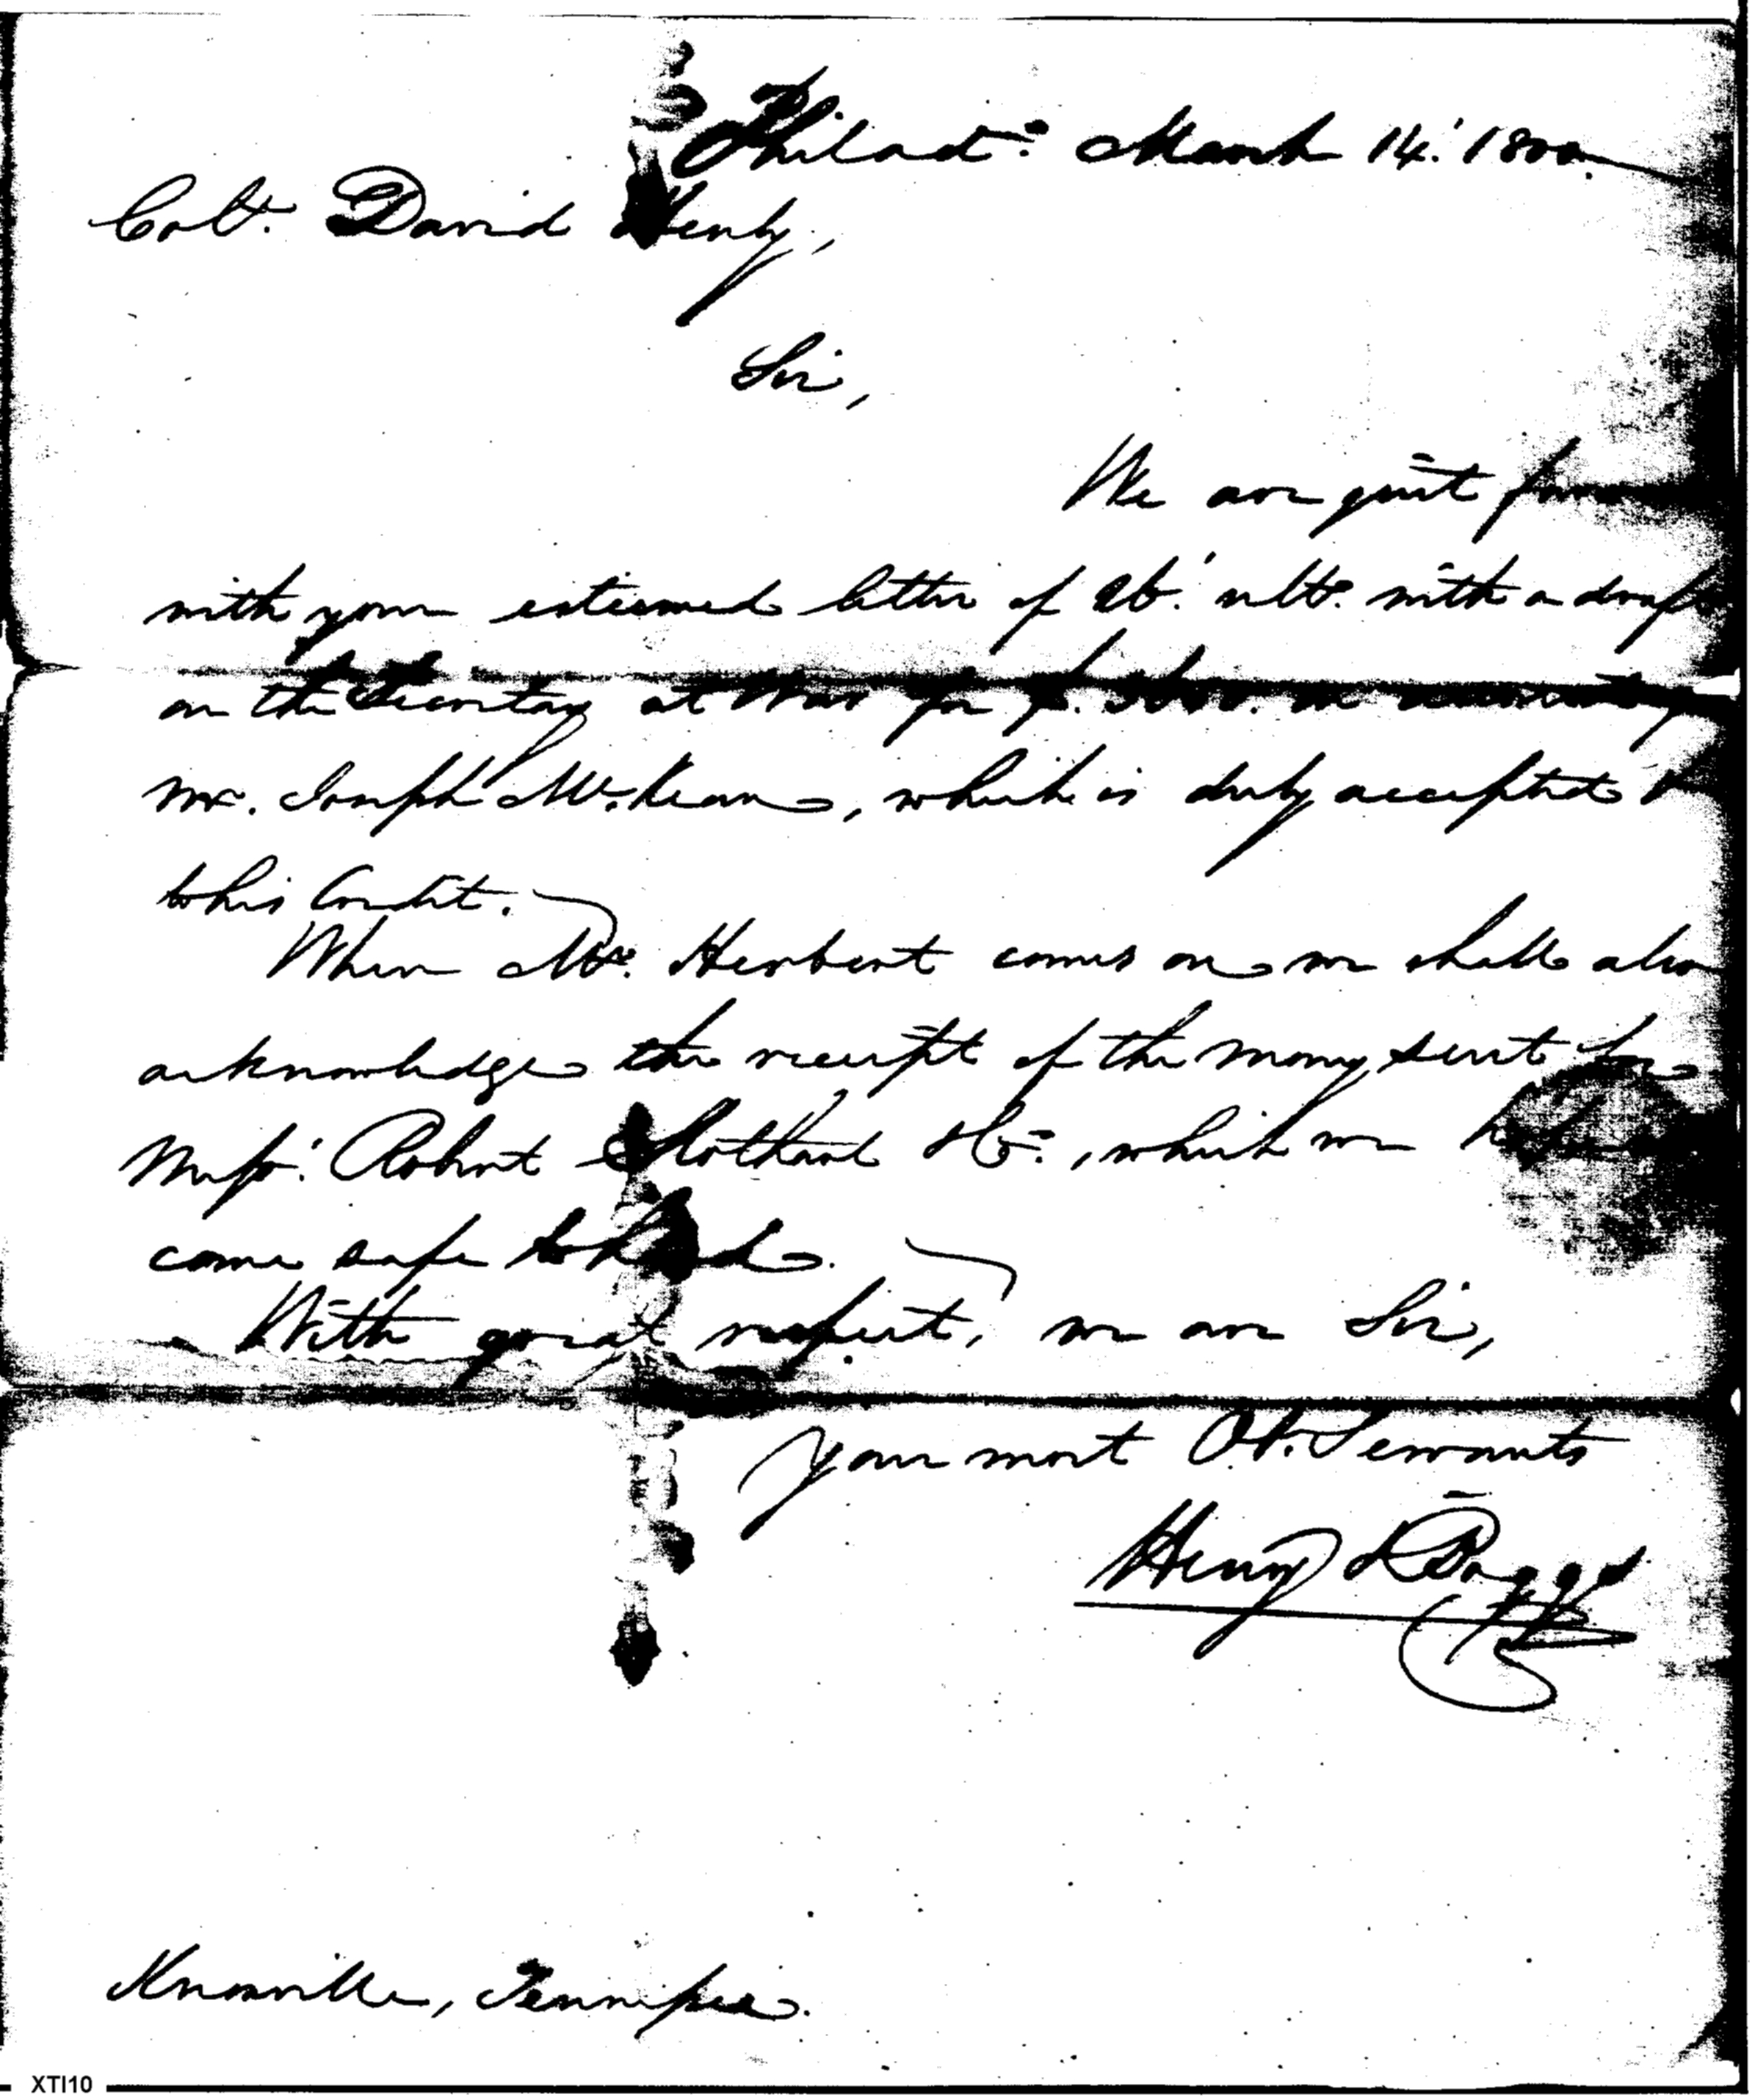 Philada: March 14.' 1800.
Colo. David Henly,
Sir,
We are just
with your esteemed letter of ulto. with a draft
on the Secretary at War for
Mr. Joseph McKean, which is duly accepted
to his Credit.
When Mr. Herbert comes on we shall also
acknowledge the receipt of the money sent for
Messrs. Robert Stothart & Co:, which we
come safe to hand.
With great respect, we are Sir,
Your most Ob. Servants
Henry & Boggs
Knoxville, Tennessee.
XTI10